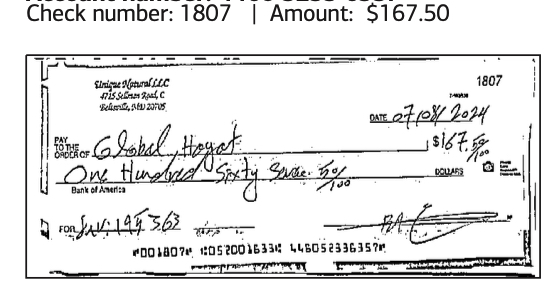 Check number: 1807 | Amount: $167.50
Unique Natural LLC
4715 Sellman Road, C
Beltsville, MD 20705
1807
DATE 07/08/2024
PAY TO THE ORDER OF Global Hayat $167.50/100
One Hundred Sixty Seven 50/100 DOLLARS
Bank of America
FOR Inv: 195363
⑈001807⑈ ⑆052001633⑆ 446052336357⑈